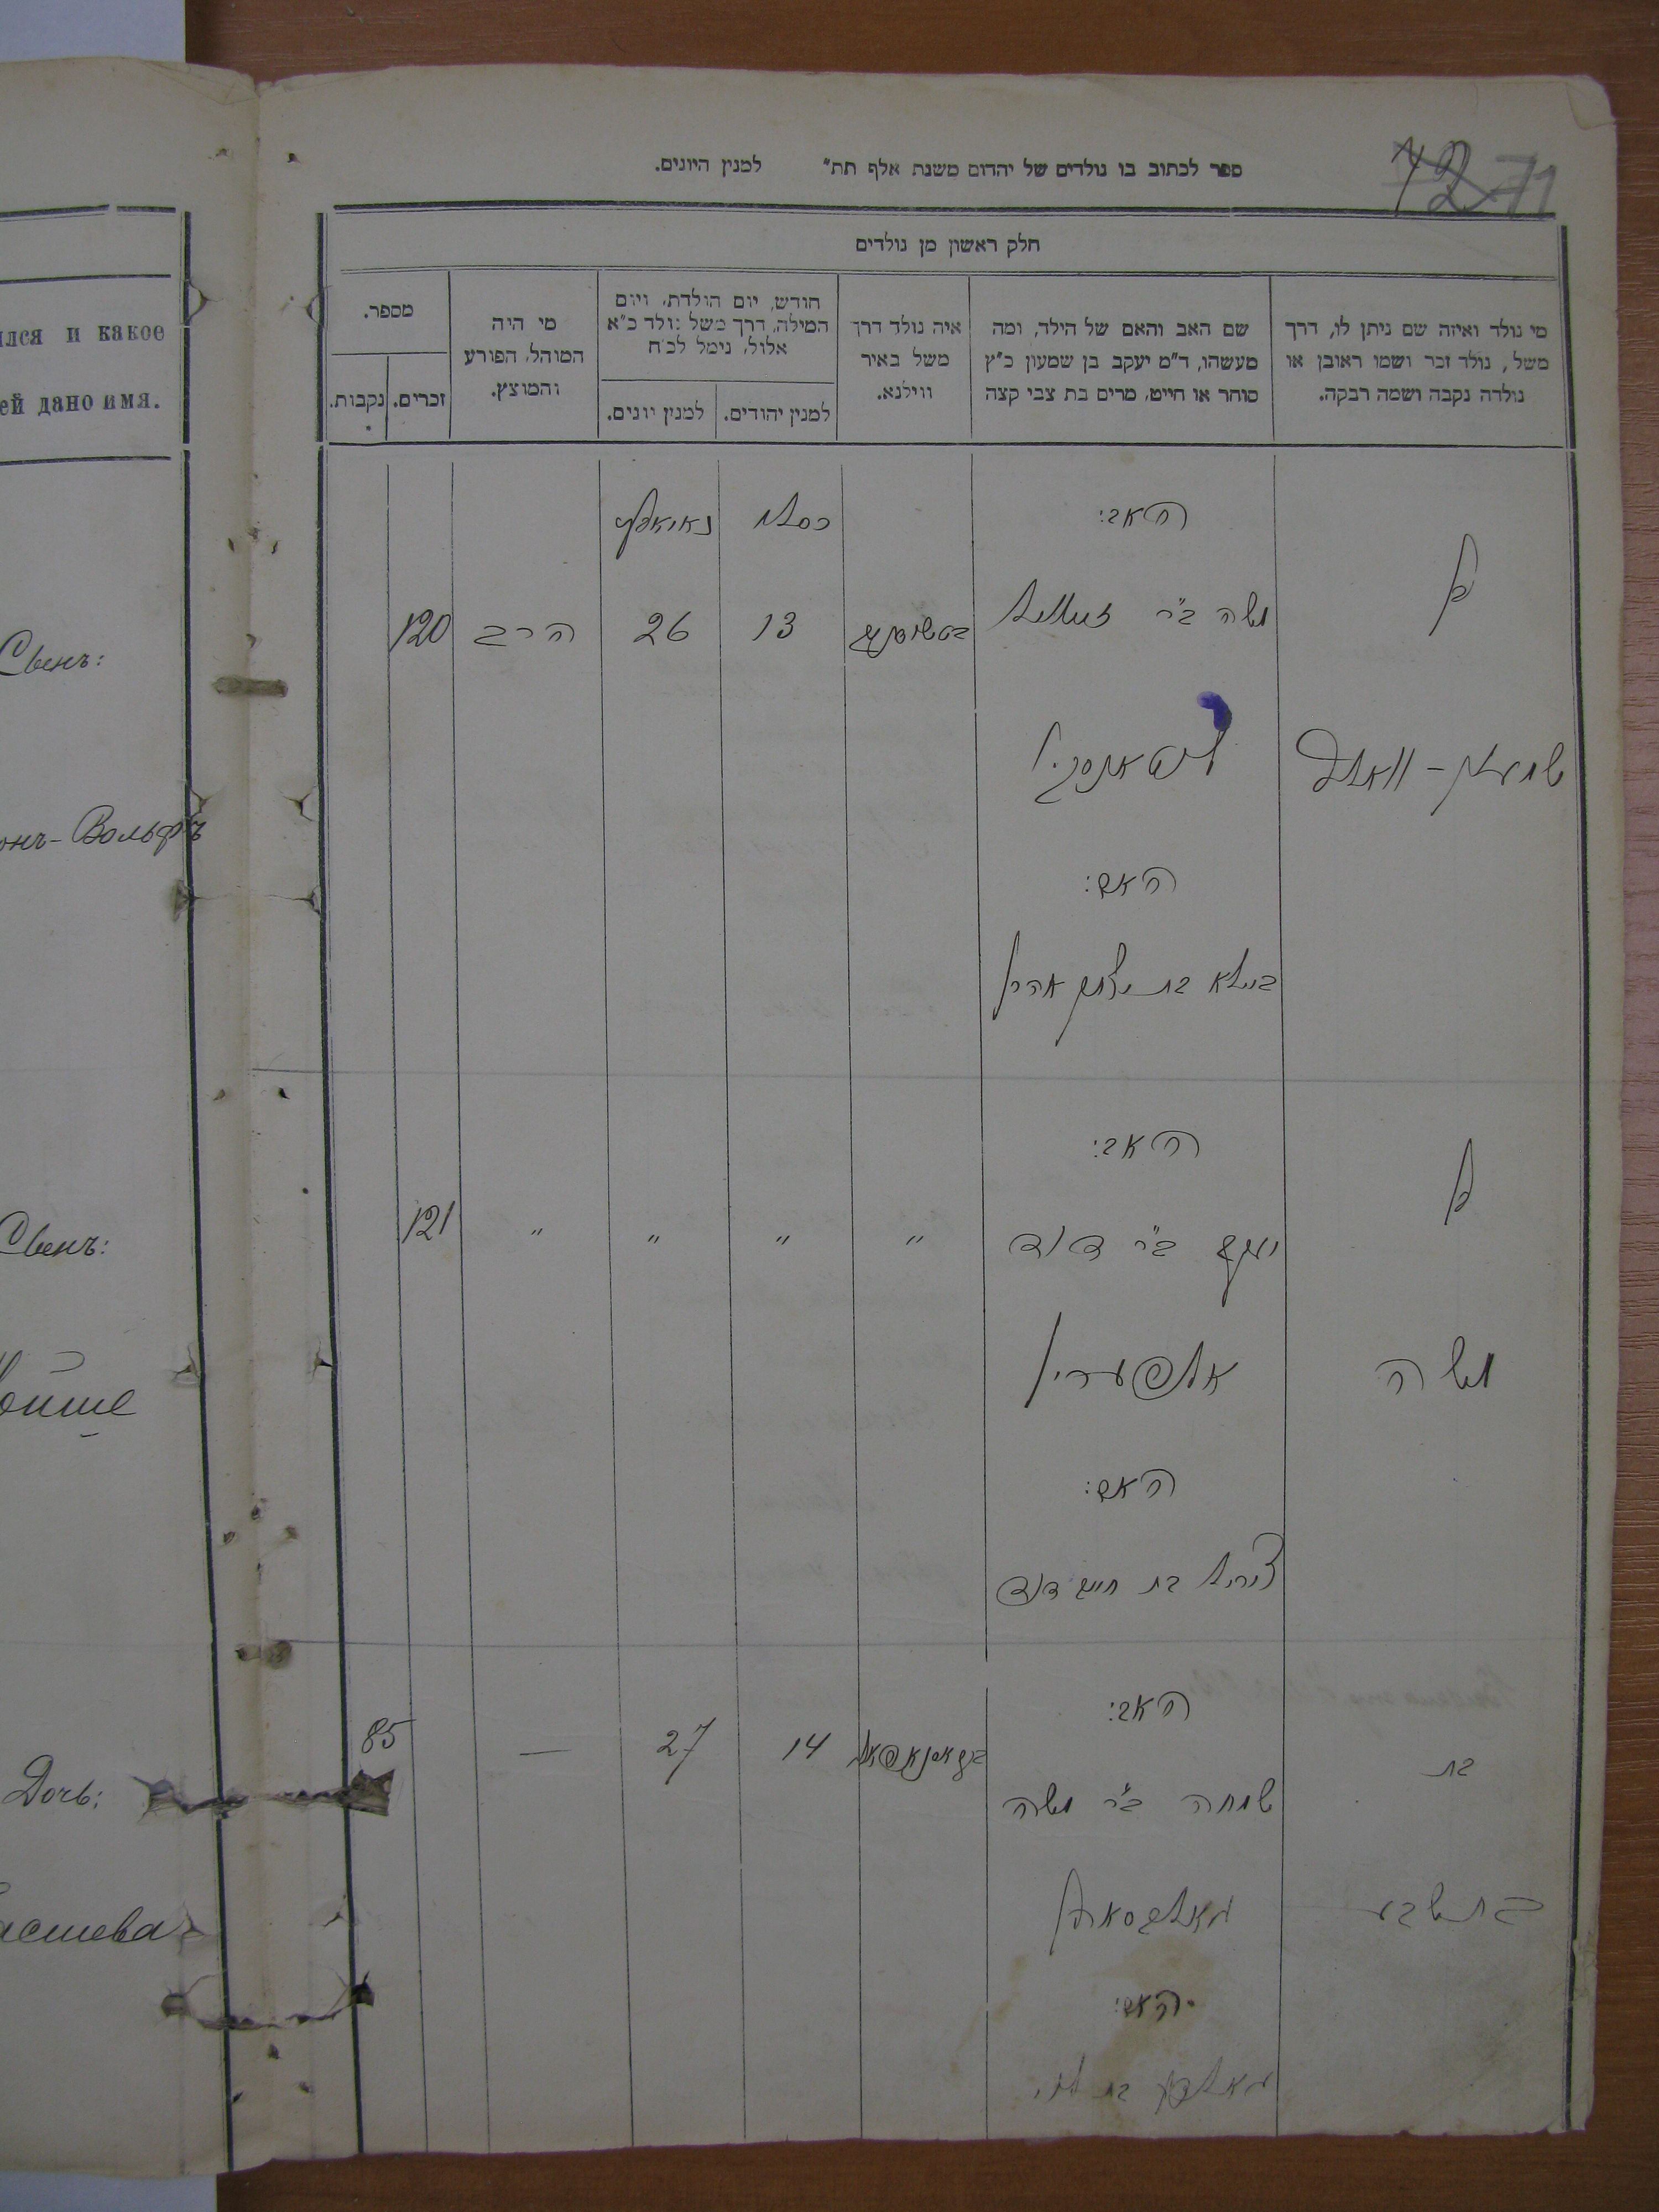 72 71
ספר לכתוב בו נולדים של יהדום משנת אלף תת״ למנין היונים.
חלק ראשון מן נולדים
מי נולד ואיזה שם ניתן לו, דרך
משל, נולד זכר ושמו ראובן או
נולדה נקבה ושמה רבקה.
שם האב והאם של הילד, ומה
מעשהו, ד״מ יעקב בן שמעון כ״ץ
סוחר או חייט, מרים בת צבי קצה
איה נולד דרך
משל באיר
ווילנא.
חודש, יום הולדת, ויום
המילה, דרך משל נולד כ״א
אלול, נימל לכ״ח
למנין יהודים.
למנין יונים.
מי היה
המוהל, הפורע
והמוצץ.
מספר.
זכרים.
נקבות.
ился и какое
ей дано имя.
בן
שמעון - וואלף
האב:
משה ב״ר זעליג
האם:
ביילא בת יצחק אהרן
כסלו
13
26
הרב
120
Сынъ:
онъ-Вольфъ
בן
משה
האב:
יעקב ב״ר דוד
אלפערין
האם:
בת חיים דוד
״
״
״
״
121
Сынъ:
Мойше
בת
בת שבע
האב:
שמחה ב״ר משה
האם:
14
27
—
85
Дочь:
асшева